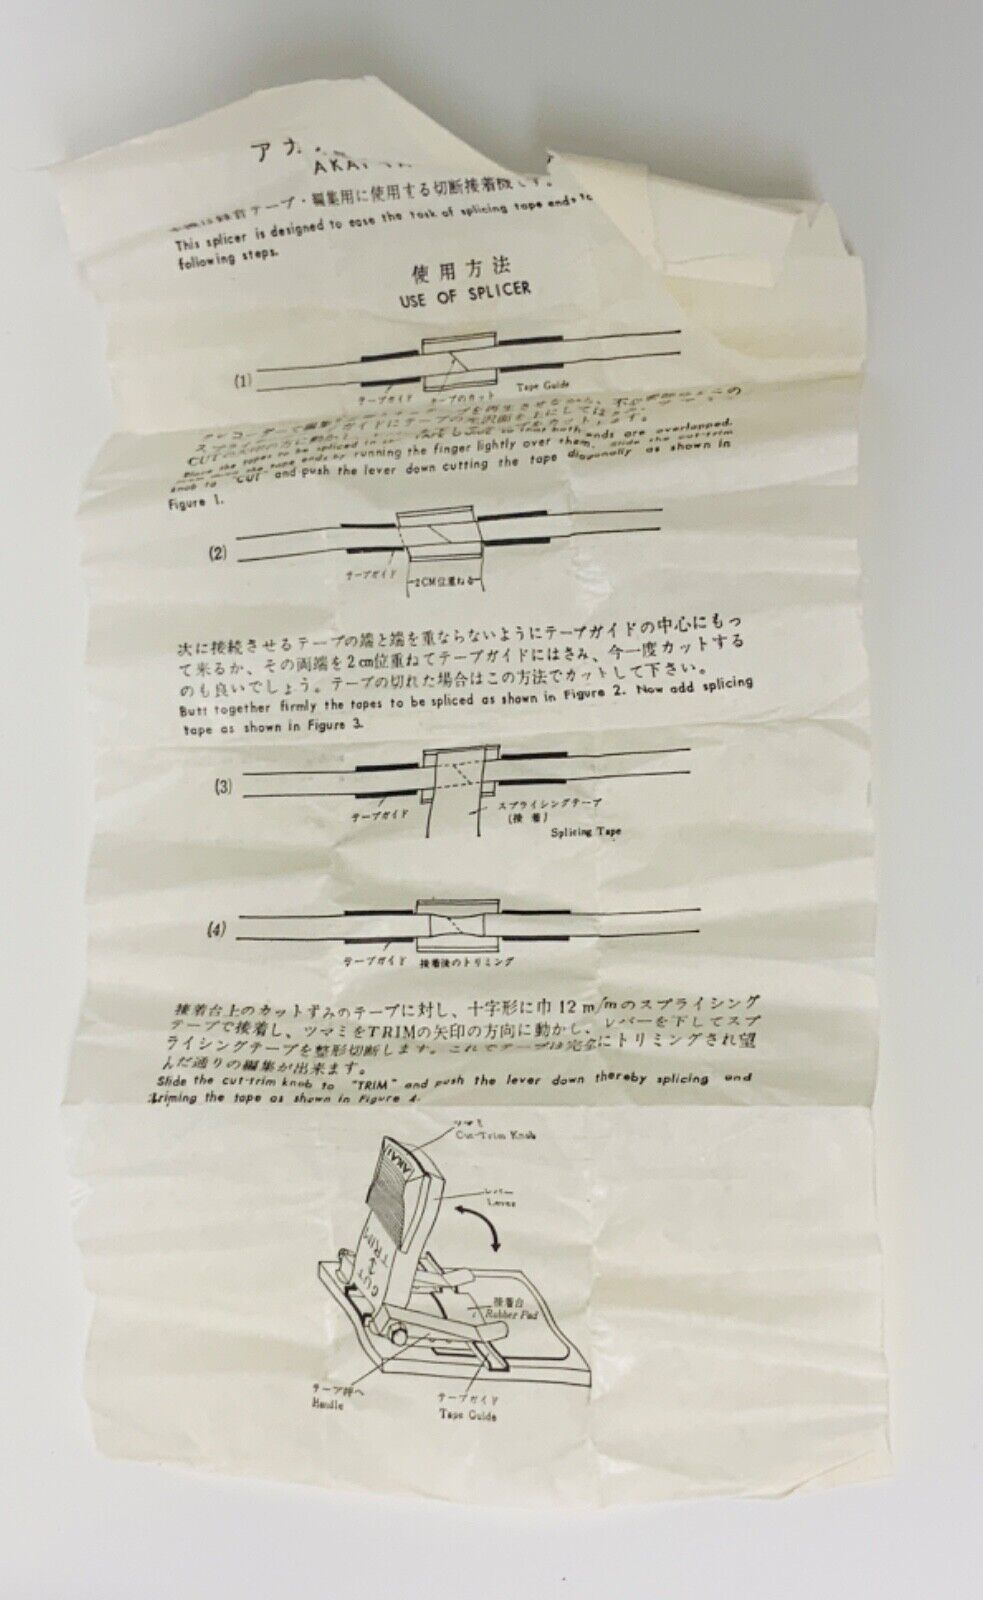 アカ
AKAI
録音テープ・編集用に使用する切断接着機です。
This splicer is designed to ease the task of splicing tape ends to
following steps.
使用方法
USE OF SPLICER
(1)
テープガイド テープのカット Tape Guide
running the finger lightly over them. Slide the cut-trim
knob to "CUT" and push the lever down cutting the tape diagonally as shown in
Figure 1.
(2)
テープガイド 2CM位重ねる
次に接続させるテープの端と端を重ならないようにテープガイドの中心にもっ
て来るか、その両端を2cm位重ねてテープガイドにはさみ、今一度カットする
のも良いでしょう。テープの切れた場合はこの方法でカットして下さい。
Butt together firmly the tapes to be spliced as shown in Figure 2. Now add splicing
tape as shown in Figure 3.
(3)
テープガイド スプライシングテープ
(接着)
Splicing Tape
(4)
テープガイド 接着後のトリミング
接着台上のカットずみのテープに対し、十字形に巾12m/mのスプライシング
テープで接着し、ツマミをTRIMの矢印の方向に動かし、レバーを下してスプ
ライシングテープを整形切断します。これでテープは完全にトリミングされ望
んだ通りの編集が出来ます。
Slide the cut-trim knob to "TRIM" and push the lever down thereby splicing and
triming the tape as shown in Figure 4.
ツマミ
Cut-Trim Knob
AKAI
レバー
Lever
TRIM
CUT
接着台
Rubber Pad
テープ押へ
Handle
テープガイド
Tape Guide